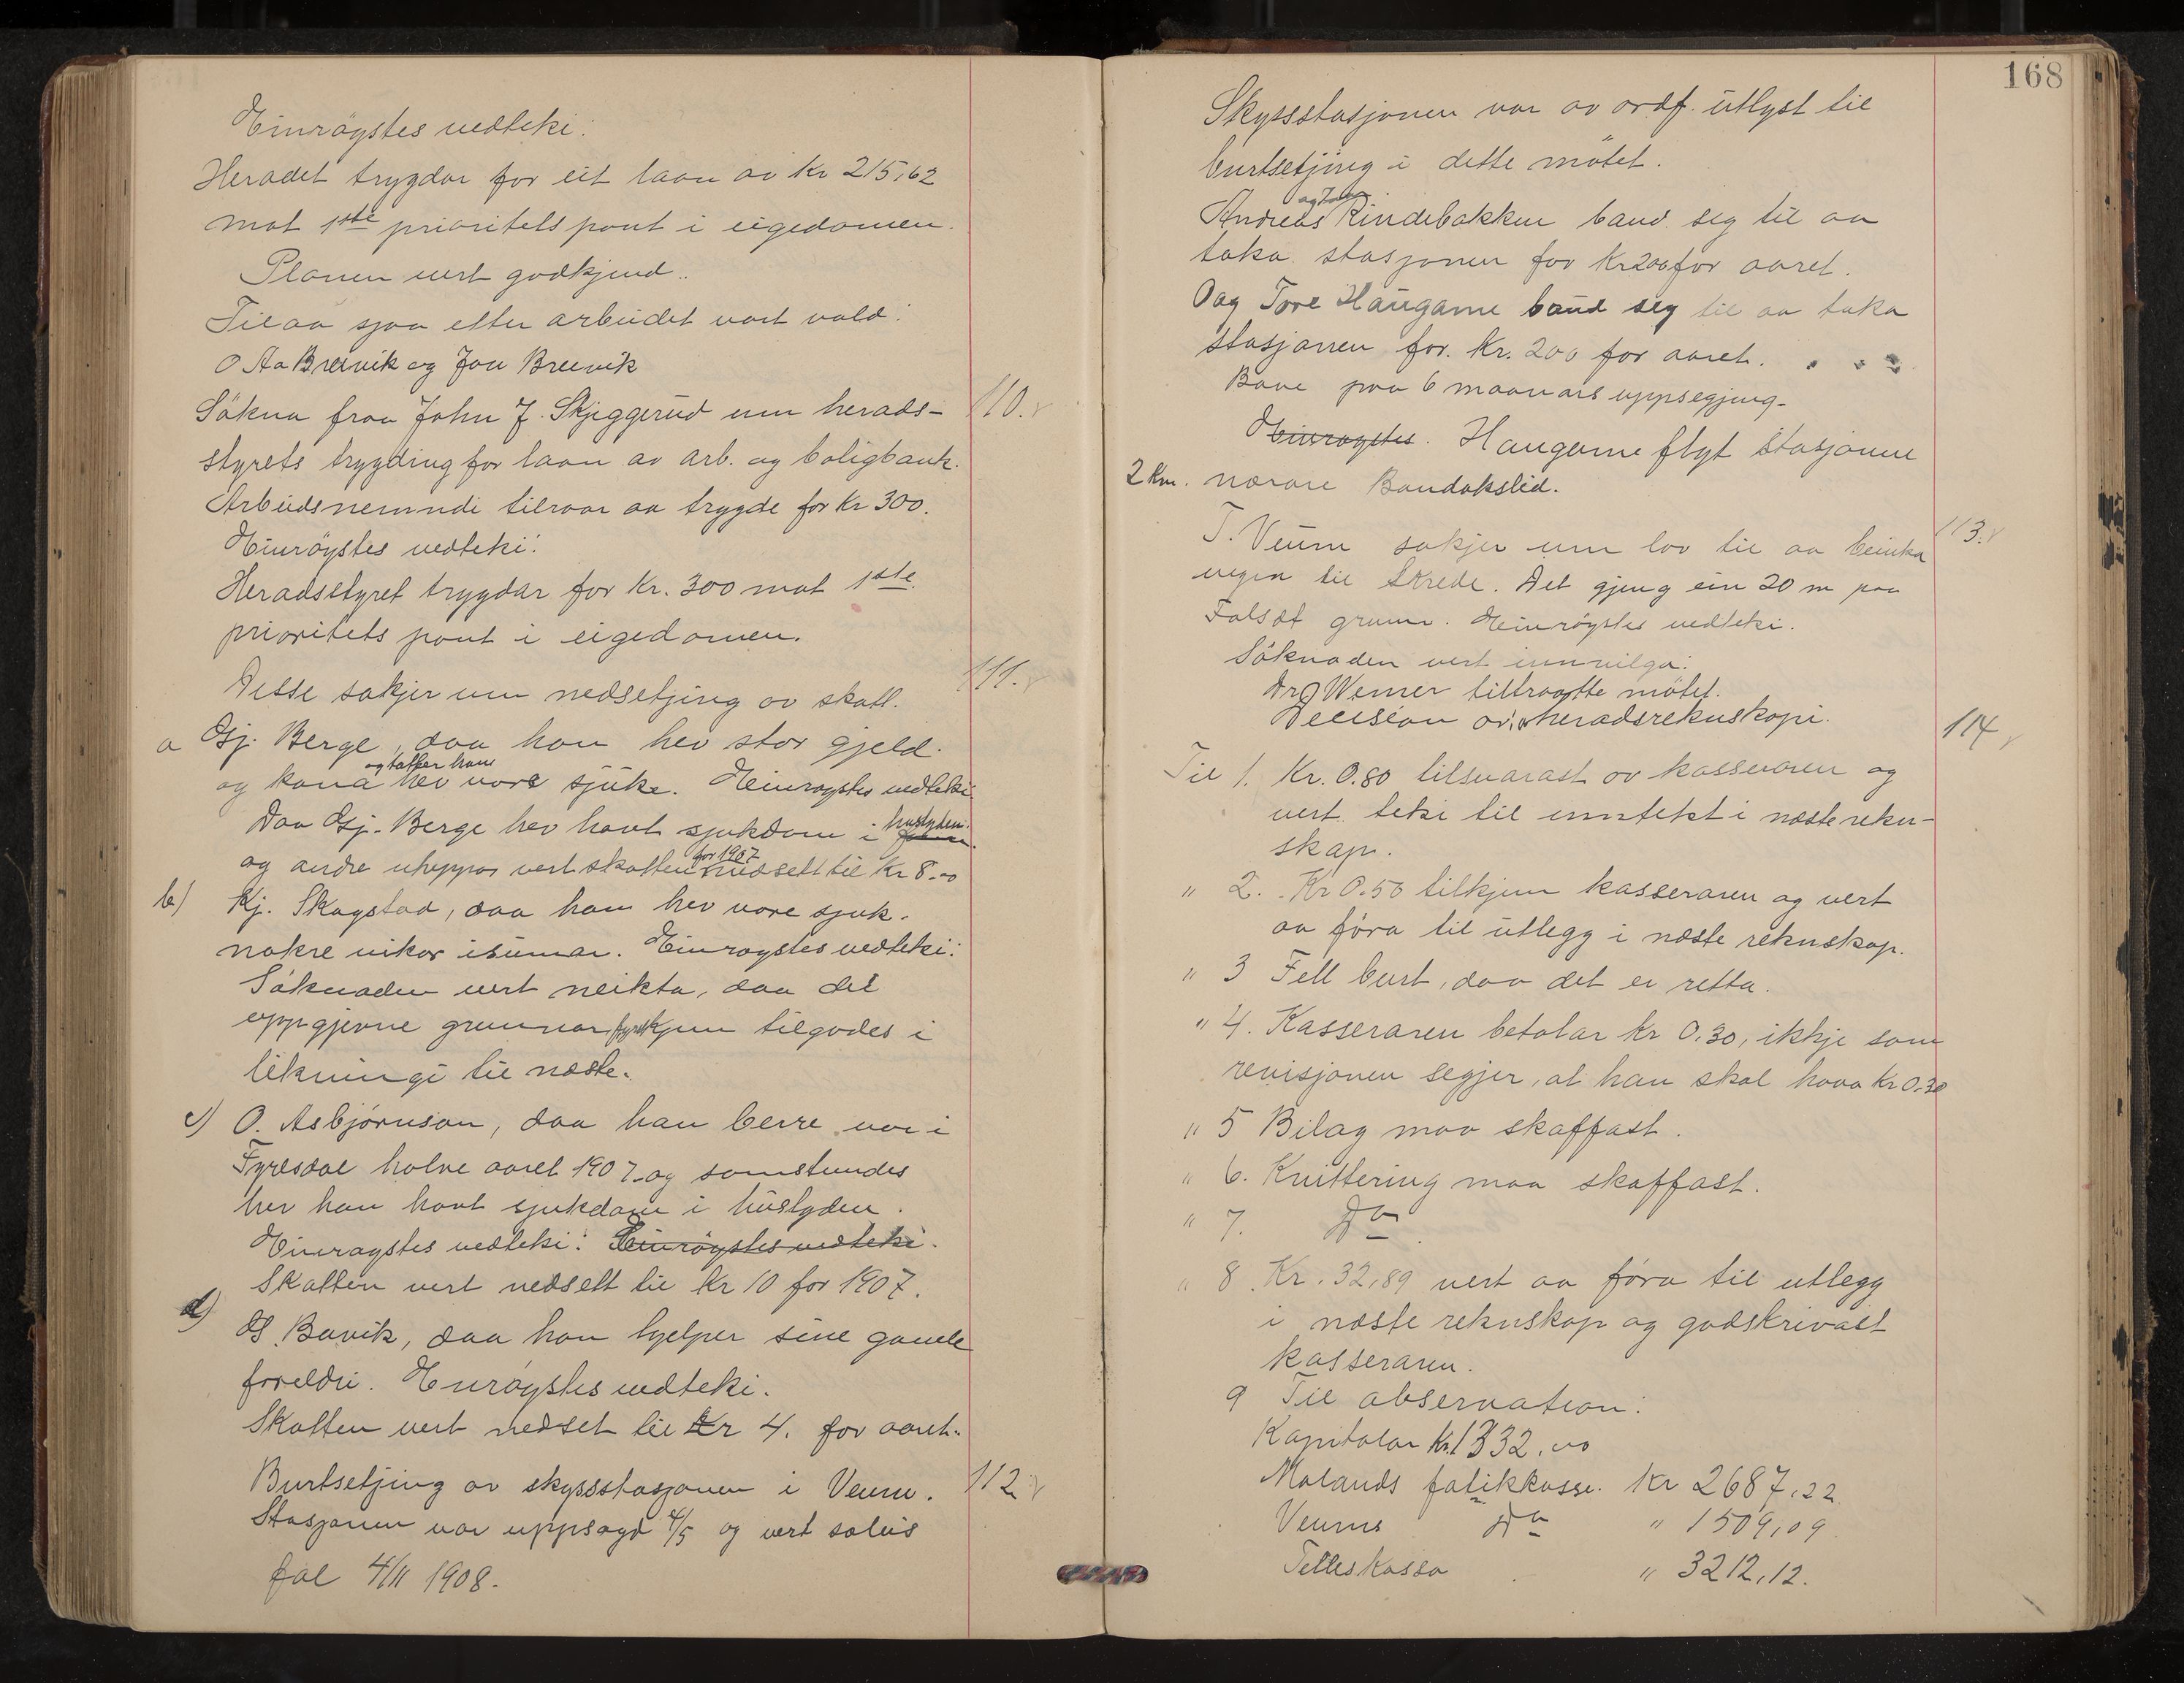 Einröystes vedteki:
Heradet trygdar for eit laan av Kr 215,62
mot 1ste prioritets pant i eigedomen.
Planen vert godkjend..
Til aa sjaa etter arbeidet vart vald:
O Aa Breivik og Jon Breivik
Sökna fraa John J. Skjeggerud um herads- 110.
styrets trygding for laan av arb. og boligbank.
Arbeidsnemndi tilraar aa trygde for Kr 300.
Einröystes vedteki:
Heradsstyret trygdar for Kr. 300 mot 1ste
prioritets pant i eigedomen.
111.
Desse søkjer um nedsetjing av skatt.
a Gj. Berge, daa han hev stor gjeld.
og kona hev vore sjuke. Einrøystes vedteki
Daa Gj. Berge hev havt sjukdom i huslyden.
og andre uheppor vert skatten for 1907 nedsett til Kr 8.00
b) Kj. Skogstad, daa han hev vore sjuk.
nokre vikor i sumar. Einrøystes vedteki:
Söknaden vert neikta, daa dei
uppgjevne grunnar fyrst kjem tilgodes i
likningi til næste.
c) O. Asbjörnson, daa han berre var i
Fyresdal halve aaret 1907 og somstundes
hev han havt sjukdom i huslyden.
Einrøystes vedteki: Einröystes vedteki.
Skatten vert nedsett til Kr 10 for 1907.
d)
G. Bavik, daa han hjelper sine gamle
foreldri. Einröystes vedteki.
Skatten vert nedset til Kr 4. for aaret.
Burtsetjing av skyssstasjonen i Veum. 112.
Stasjonen var uppsagd 4/5 og vert soleis
fal 4/11 1908.
168
Skyssstasjonen var av ordf. utlyst til
burtsetjing i dette mötet.
Andreas Rindebakken baud seg til aa
taka stasjonen for Kr 200 for aaret.
Oag Tore Haugane baud seg til aa taka
stasjonen for. Kr. 200 for aaret.
Bae paa 6 maanars uppsegjing.
Einrøystes. Haugane flyt stasjonen
2 Km. nærare Bandakslid.
T. Veum søkjer um lov til aa beinka 113.
vegen til Skrede. Det gjeng ein 20 m paa
Falsdt grunn. Einröystes vedteki.
Söknaden vert innvilga:
Dr Werner tiltraadte mötet.
Decision av heradsrekneskapi. 114
Til 1. Kr. 0.80 tilsvarast av kasseraren og
vert teki til inntekt i næste rekn-
skap.
" 2. Kr 0.50 tilkjem kasseraren og vert
aa föra til utlegg i næste reknskap.
" 3 Fell burt, daa det er retta.
" 4. Kasseraren betalar Kr 0.30, ikkje som
revisjonen segjer, at han skal hava Kr 0.30
" 5 Bilag maa skaffast.
" 6. Kvittering maa skaffast.
" 7. Do
" 8 Kr. 32,89 vert aa föra til utlegg
i næste reknskap og godskrivast
kasseraren.
9 Til observation:
Kapitalar Kr. 1332.00
Molands fatikkasse. Kr 2687,22
Veums Do " 1509,09
Felleskassa " 3212,12.